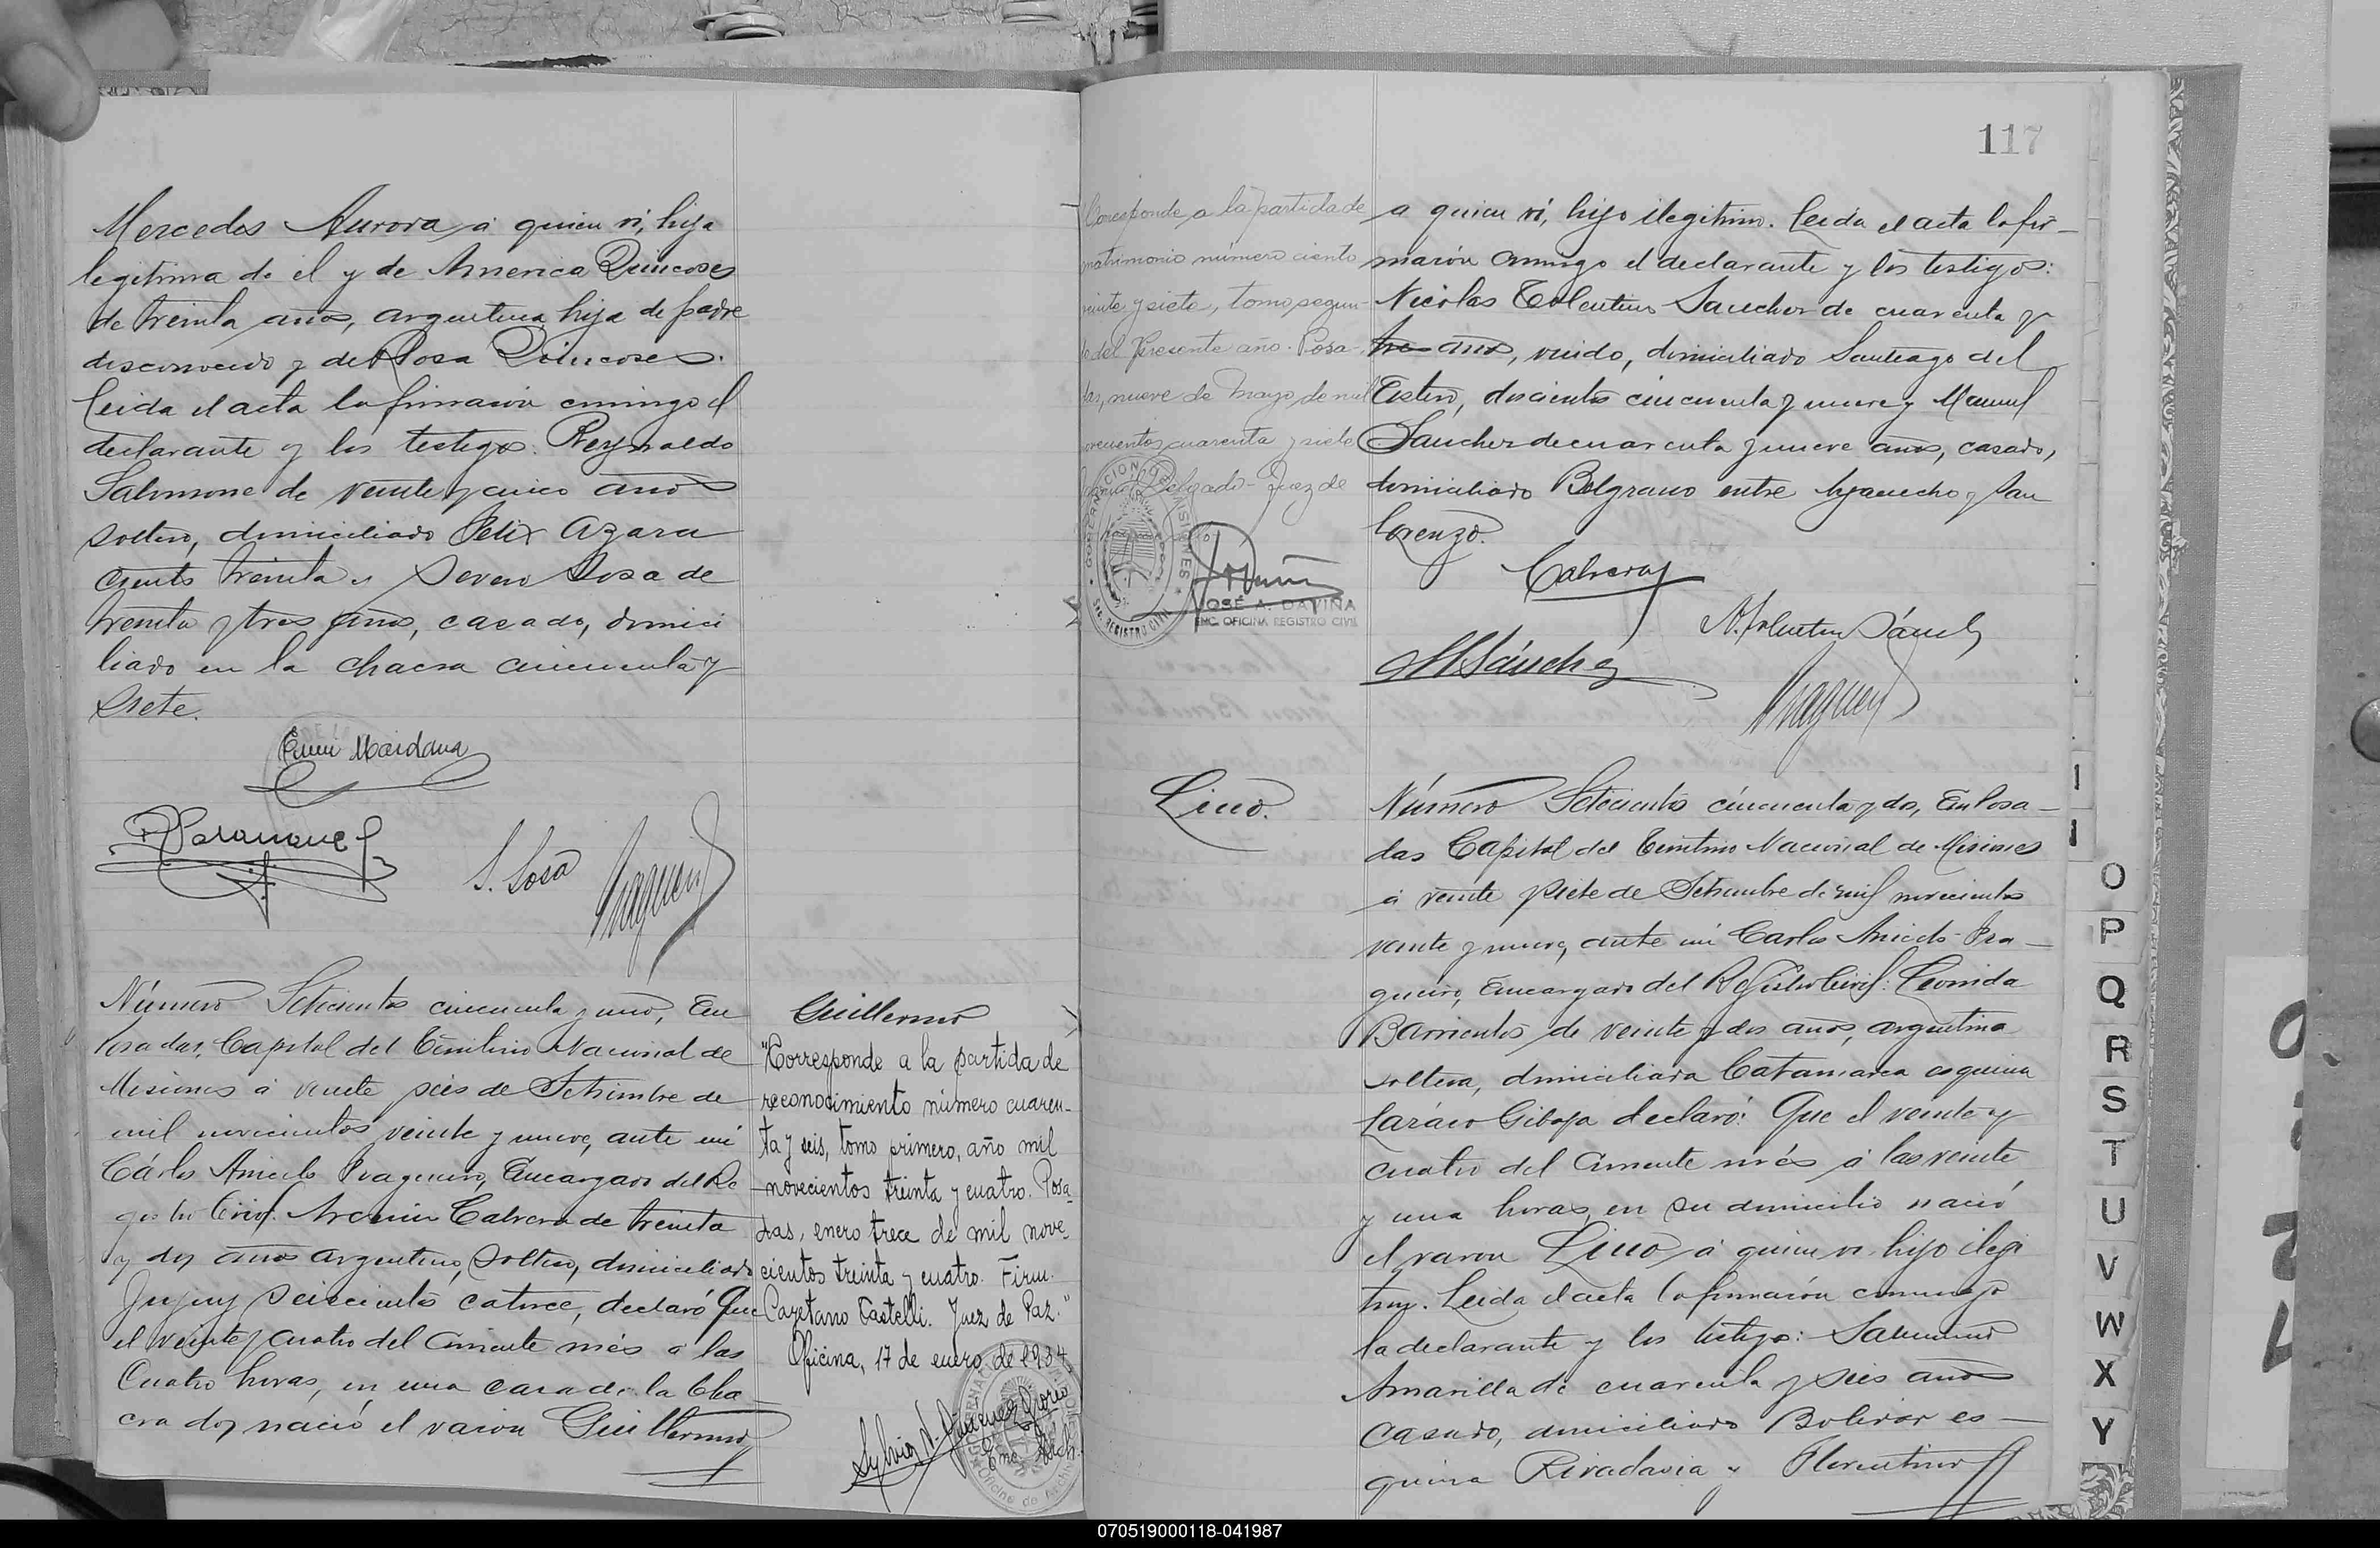 Mercedes Aurora, á quien ví, hija
legitima de él y de America Quincoses
de treinta años, argentina, hija de padre
desconocido y de Rosa Quincoses.
Leida el acta la firmaron conmigo el
declarante y los testigos: Reynaldo
de veinte y cinco años
soltero, domiciliado Felix Azara
ciento treinta y Severo Sosa de
treinta y tres años, casado, domici
liado en la chacra cincuenta y
siete.
Maidana
S. Sosa
Número Setecientos cincuenta y uno, En
Posadas, Capital del Territorio Nacional de
Misiones á veinte seis de Setiembre de
mil novecientos veinte y nueve, ante mi
Cárlos Aniceto Fragueiro, Encargado del Re
gistro Civil. Arsenio Cabrera de treinta
y dos años argentino, soltero, domiciliado
Jujuy seiscientos catorce, declaró Que
el veinte y cuatro del corriente més á las
Cuatro horas, en una casa de la Cha
cra dos nació el varon Guillermo,
Guillermo
"Corresponde a la partida de
reconocimiento número cuaren-
ta y seis, tomo primero, año mil
novecientos treinta y cuatro. Posa-
das, enero trece de mil nove-
cientos treinta y cuatro. Firm.
Cayetano Castelli. Juez de Paz."
Oficina, 17 de enero de 1934
117
Corresponde a la partida de
matrimonio número ciento
veinte y siete, tomo segun-
do del presente año. Posa-
das, nueve de Mayo de mil
novecientos cuarenta y siete
Delgado - Juez de
JOSÉ A. DAVIÑA
ENC. OFICINA REGISTRO CIVIL
a quien ví, hijo ilegitimo. Leida el acta la fir-
maron conmigo el declarante y los testigos:
Nicolas Tolentino Sanchez de cuarenta y
tres años, viudo, domiciliado Santiago del
Estero, doscientos cincuenta y nueve y Manuel
Sanchez de cuarenta y nueve años, casado,
domiciliado Belgrano entre Ayacucho y San
Lorenzo.
Cabrera
N. Tolentino Sánchez
M Sánchez
Lino.
Número Setecientos cincuenta y dos, En Posa-
das Capital del Territorio Nacional de Misiones
á veinte siete de Setiembre de mil novecientos
veinte y nueve, ante mi Carlos Aniceto Fra-
gueiro, Encargado del Registro Civil: Leonida
Barrientos de veinte y dos años, argentina
soltera, domiciliada Catamarca esquina
declaró: Que el veinte y
cuatro del corriente més á las veinte
y una horas, en su domicilio nació
el varon Lino, á quien ví, hijo ilegi
timo. Leida el acta la firmaron conmigo
la declarante y los testigos: Saturnino
Amarilla de cuarenta y seis años
casado, domiciliado Bolivar es-
quina Rivadavia y Florentino
O
P
Q
R
S
T
U
V
W
X
Y
070519000118-041987